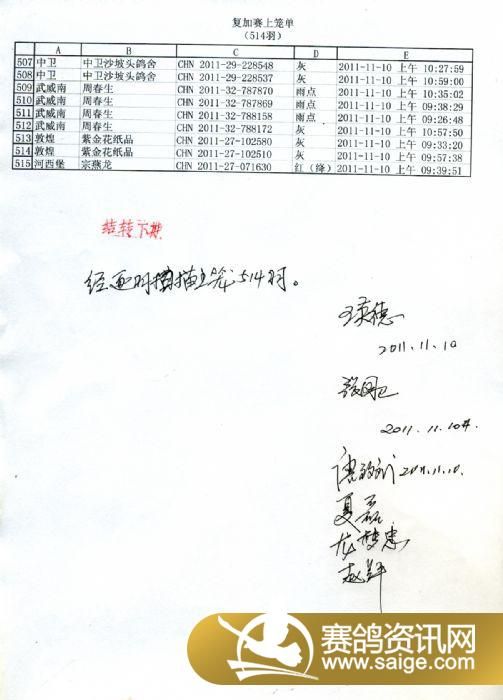 复加赛上笼单
(514羽)
A B C D E
507 中卫 中卫沙坡头鸽舍 CHN 2011-29-228548 灰 2011-11-10 上午 10:27:59
508 中卫 中卫沙坡头鸽舍 CHN 2011-29-228537 灰 2011-11-10 上午 10:59:00
509 武威南 周春生 CHN 2011-32-787870 雨点 2011-11-10 上午 10:35:02
510 武威南 周春生 CHN 2011-32-787869 雨点 2011-11-10 上午 09:38:29
511 武威南 周春生 CHN 2011-32-788158 雨点 2011-11-10 上午 09:26:48
512 武威南 周春生 CHN 2011-32-788172 灰 2011-11-10 上午 10:57:50
513 敦煌 紫金花纸品 CHN 2011-27-102580 灰 2011-11-10 上午 09:33:20
514 敦煌 紫金花纸品 CHN 2011-27-102510 灰 2011-11-10 上午 09:57:38
515 河西堡 宗燕龙 CHN 2011-27-071630 红(绛) 2011-11-10 上午 09:39:51
结转下批
上笼514羽。
2011.11.10
2011.11.10
2011.11.10.
夏磊
龙梦忠
赵辉
赛鸽资讯网
www.saige.com